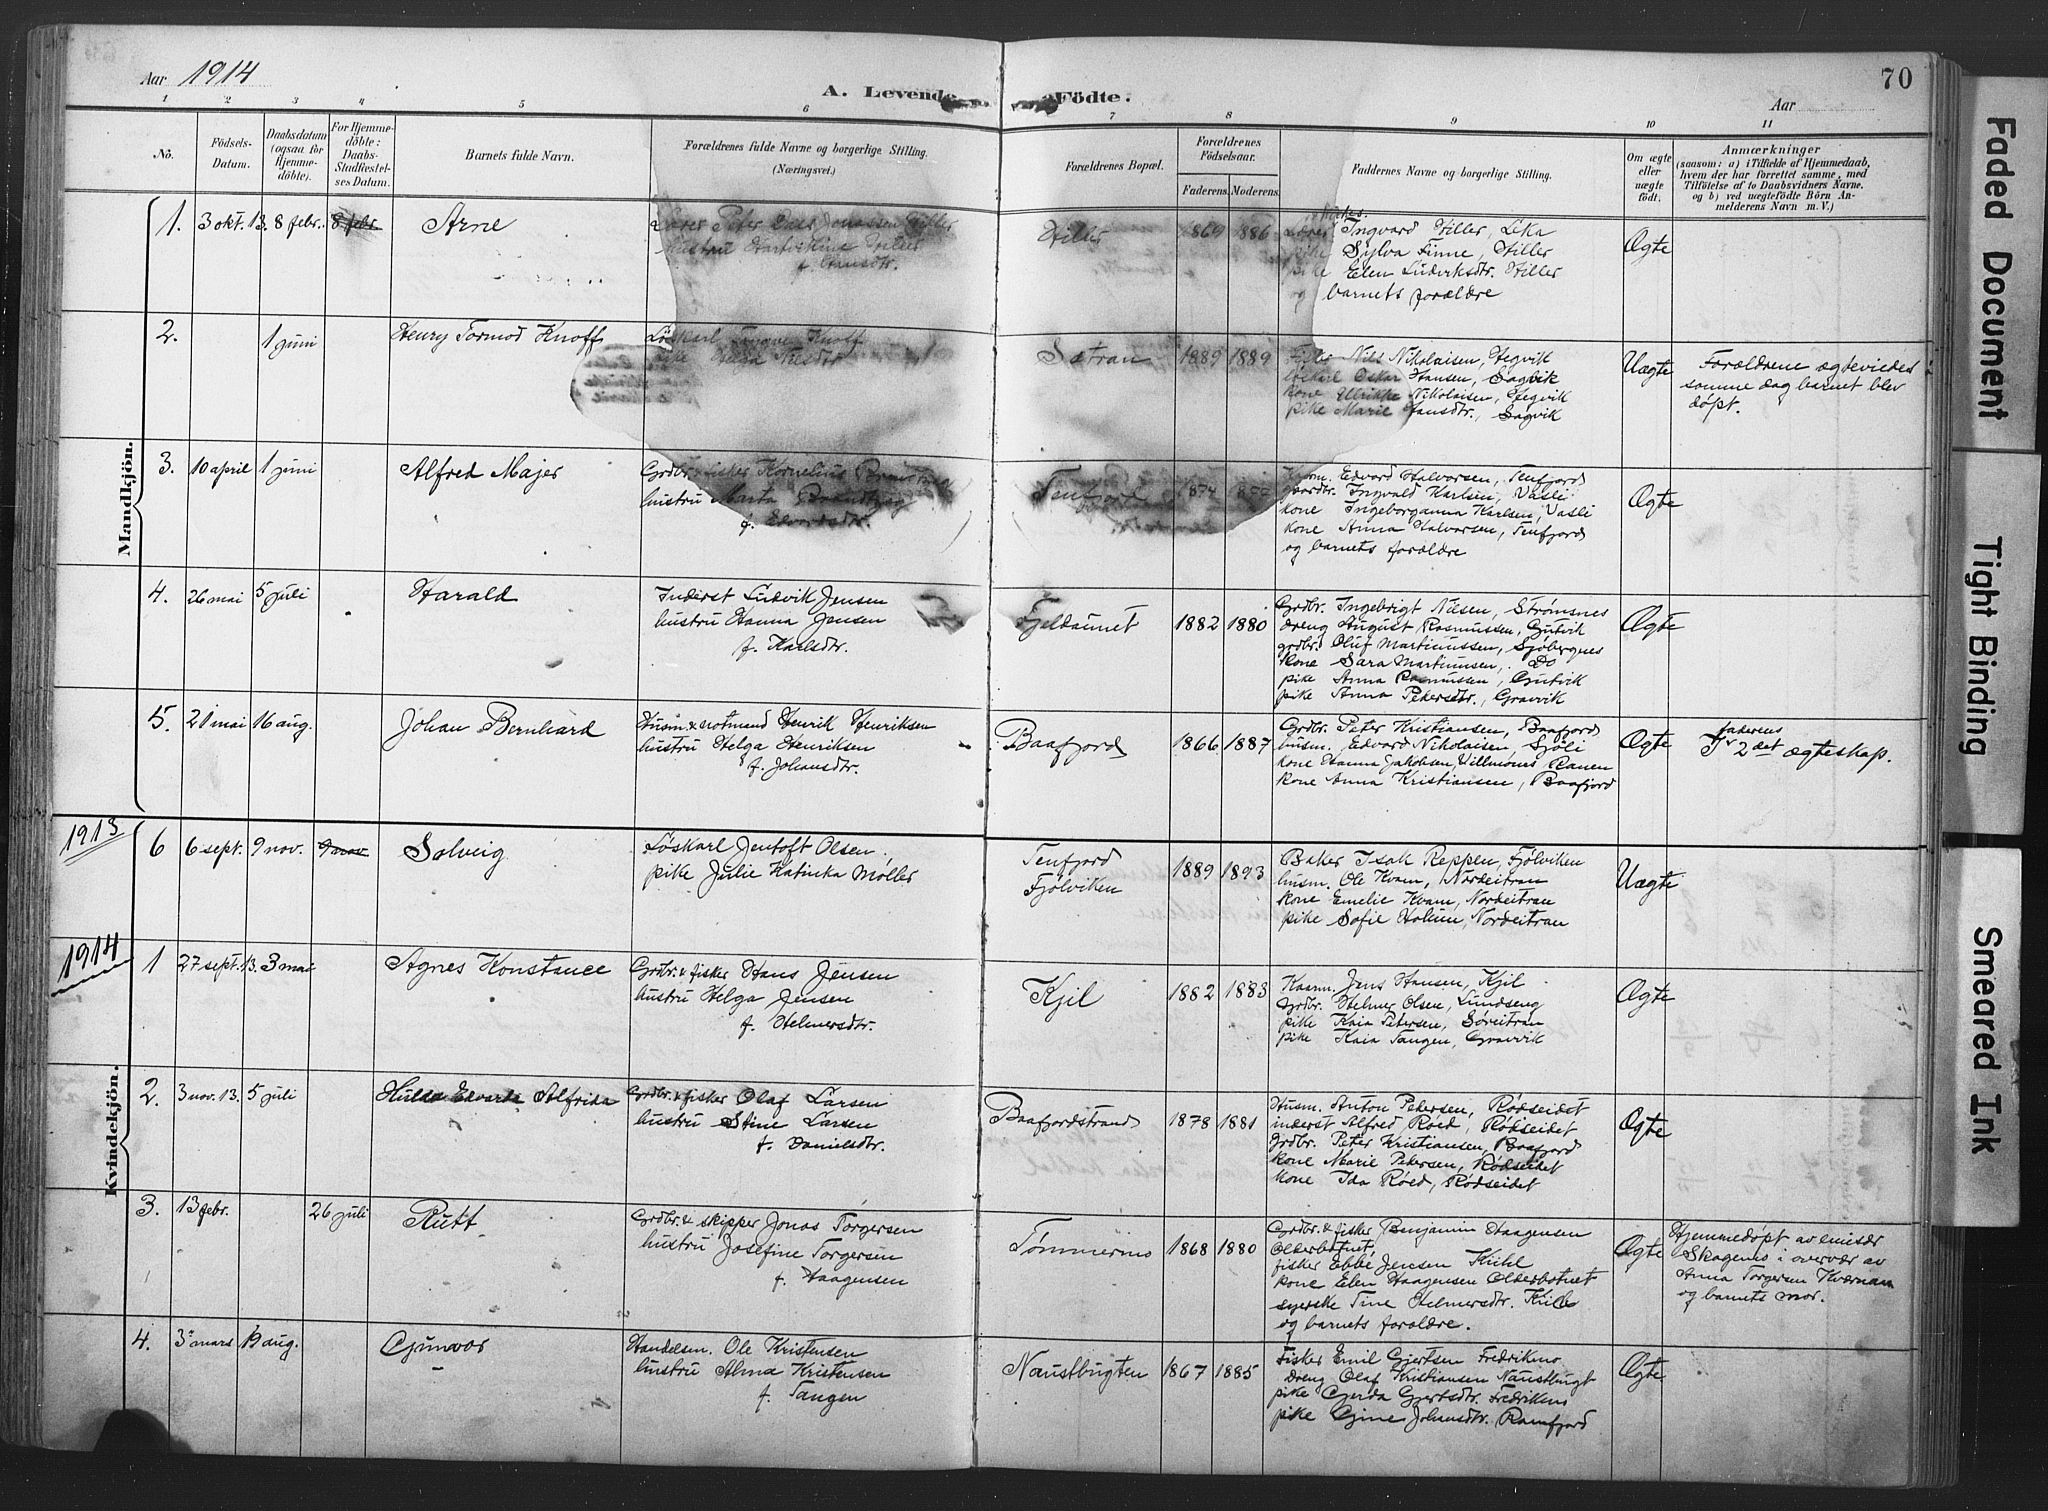 Aar 1914
A. Levende Födte.
Aar
70
1 2 3 4 5 6 7 8 9 10 11
No.
Födsels-Datum.
Daabsdatum (ogsaa for Hjemme-döbte).
For Hjemme-döbte: Daabs-Stadfæstel-ses Datum.
Barnets fulde Navn.
Forældrenes fulde Navne og borgerlige Stilling.
(Næringsvei.)
Forældrenes Bopæl.
Forældrenes Födselsaar.
Faderens. Moderens.
Faddernes Navne og borgerlige Stilling.
Om ægte eller uægte födt.
Anmærkninger
(saasom: a) i Tilfælde af Hjemmedaab,
hvem der har forrettet samme, med
Tilföielse af to Daabsvidners Navne.
og b) ved uægtefödte Börn An-
melderens Navn m. V.)
Mandkjön.
1. 3 okt. 13. 8 febr. 8 febr. Arne
Lærer Peter Jonassen Hiller
hustru Hiller
f. Hansdtr.
Hiller 1869 1886
Lærer Ingvard Hiller, Leka
pike Sylva Finne, Hiller
pike Elen Ludviksdtr. Hiller
og barnets forældre
Ægte
2. 1 juni Henry Tormod Knoff
Løskarl Knoff
pike Helga
Sætran 1889 1889
Nils Nikolaisen, Hegvik
løskarl Oskar Hansen, Sagvik
kone Ulrikke Nikolaisen, Hegvik
pike Marie Hansdtr., Sagvik
Uægte
Forældrene ægteviedes
samme dag barnet blev
døpt.
3. 10 april 1 juni Alfred Majer
Grdbr. & fisker Kornelius
hustru Marta
f. Edvardsdtr.
Tenfjord 1874
Husm. Edvard Halvorsen, Tenfjord
gaardbr. Ingvald Karlsen, Vasli
kone Ingeborganna Karlsen, Vasli
kone Anna Halvorsen, Tenfjord
og barnets forældre
Ægte
4. 26 mai 5 juli Harald
Inderst Ludvik Jensen
hustru Hanna Jensen
f. Karlsdtr.
Fjeldaunet 1882 1880
Grdbr. Ingebrigt Nilsen, Strømsnes
dreng August Rasmussen, Gutvik
grdbr. Oluf Martinussen, Sjøbergnes
kone Sara Martinusen, Do
pike Anna Rasmussen, Gutvik
pike Anna Petersdtr., Gravvik
Ægte
5. 21 mai 16 aug. Johan Bernhard
Husm. & notmand Henrik Henriksen
hustru Helga Henriksen
f. Johansdtr.
Baafjord 1866 1887
Grdbr. Peter Kristiansen, Baafjord
husm. Edvard Nikolaisen, Sjøli
kone Hanna Jakobsen, Villmones Ranen
kone Anna Kristiansen, Baafjord
Ægte
faderens
I 2det ægteskap.
1913
6 6 sept. 9 nov. 9 nov. Solveig
Løskarl Jentoft Olsen
pike Julie Katinka Møller
Tenfjord
Fjølviken
1889 1893
Baker Isak Reppen, Fjølviken
husm. Ole Kvam, Nordeitran
kone Emelie Kvam, Nordeitran
pike Sofie Holum, Nordeitran
Uægte
1914
Kvindekjön.
1 27 sept. 13. 3 mai Agnes Konstance
Grdbr. & fisker Hans Jensen
hustru Helga Jensen
f. Helmersdtr.
Kjil 1882 1883
Kaarm. Jens Hansen, Kjil
Grdbr. Helmer Olsen, Lundseng
pike Kaia Petersen, Søreitran
pike Kaia Tangen, Gravvik
Ægte
2. 3 nov. 13. 5 juli Hulda Edvarda Alfrida
Grdbr. & fisker Olaf Larsen
hustru Stine Larsen
f. Danielsdtr.
Baafjordstrand 1878 1881
Husm. Anton Petersen, Rødseidet
inderst Alfred Røed, Rødseidet
grdbr. Peter Kristiansen, Baafjord
kone Marie Petersen, Rødseidet
kone Ida Røed, Rødseidet
Ægte
3. 13 febr. 26 juli Rutt
Grdbr. & skipper Jonas Torgersen
hustru Josefine Torgersen
f. Haagensen
Tømmermo 1868 1880
Grdbr. & fisker Benjamin Haagensen
Olderbotnet,
fisker Ebbe Jensen Kihl
kone Elen Haagensen Olderbotnet
syerske Tine Helmersdtr.
og barnets forældre.
Ægte
Hjemmedøpt av emisær
Skagenes i overvær av
Anna Torgersen Kværnam
og barnets mor.
4. 3 mars 19 aug. Gunvor
Handelsm. Ole Kristensen
hustru Alma Kristensen
f. Tangen
Naustbugten 1867 1885
Fisker Emil Gjertsen Fredrikmo
dreng Olaf Kristiansen Naustbugt
pike Gjerda Gjertsdtr. Fredrikmo
pike Gjine Johansdtr. Ramfjord
Ægte
Faded Document
Tight Binding
Smeared Ink